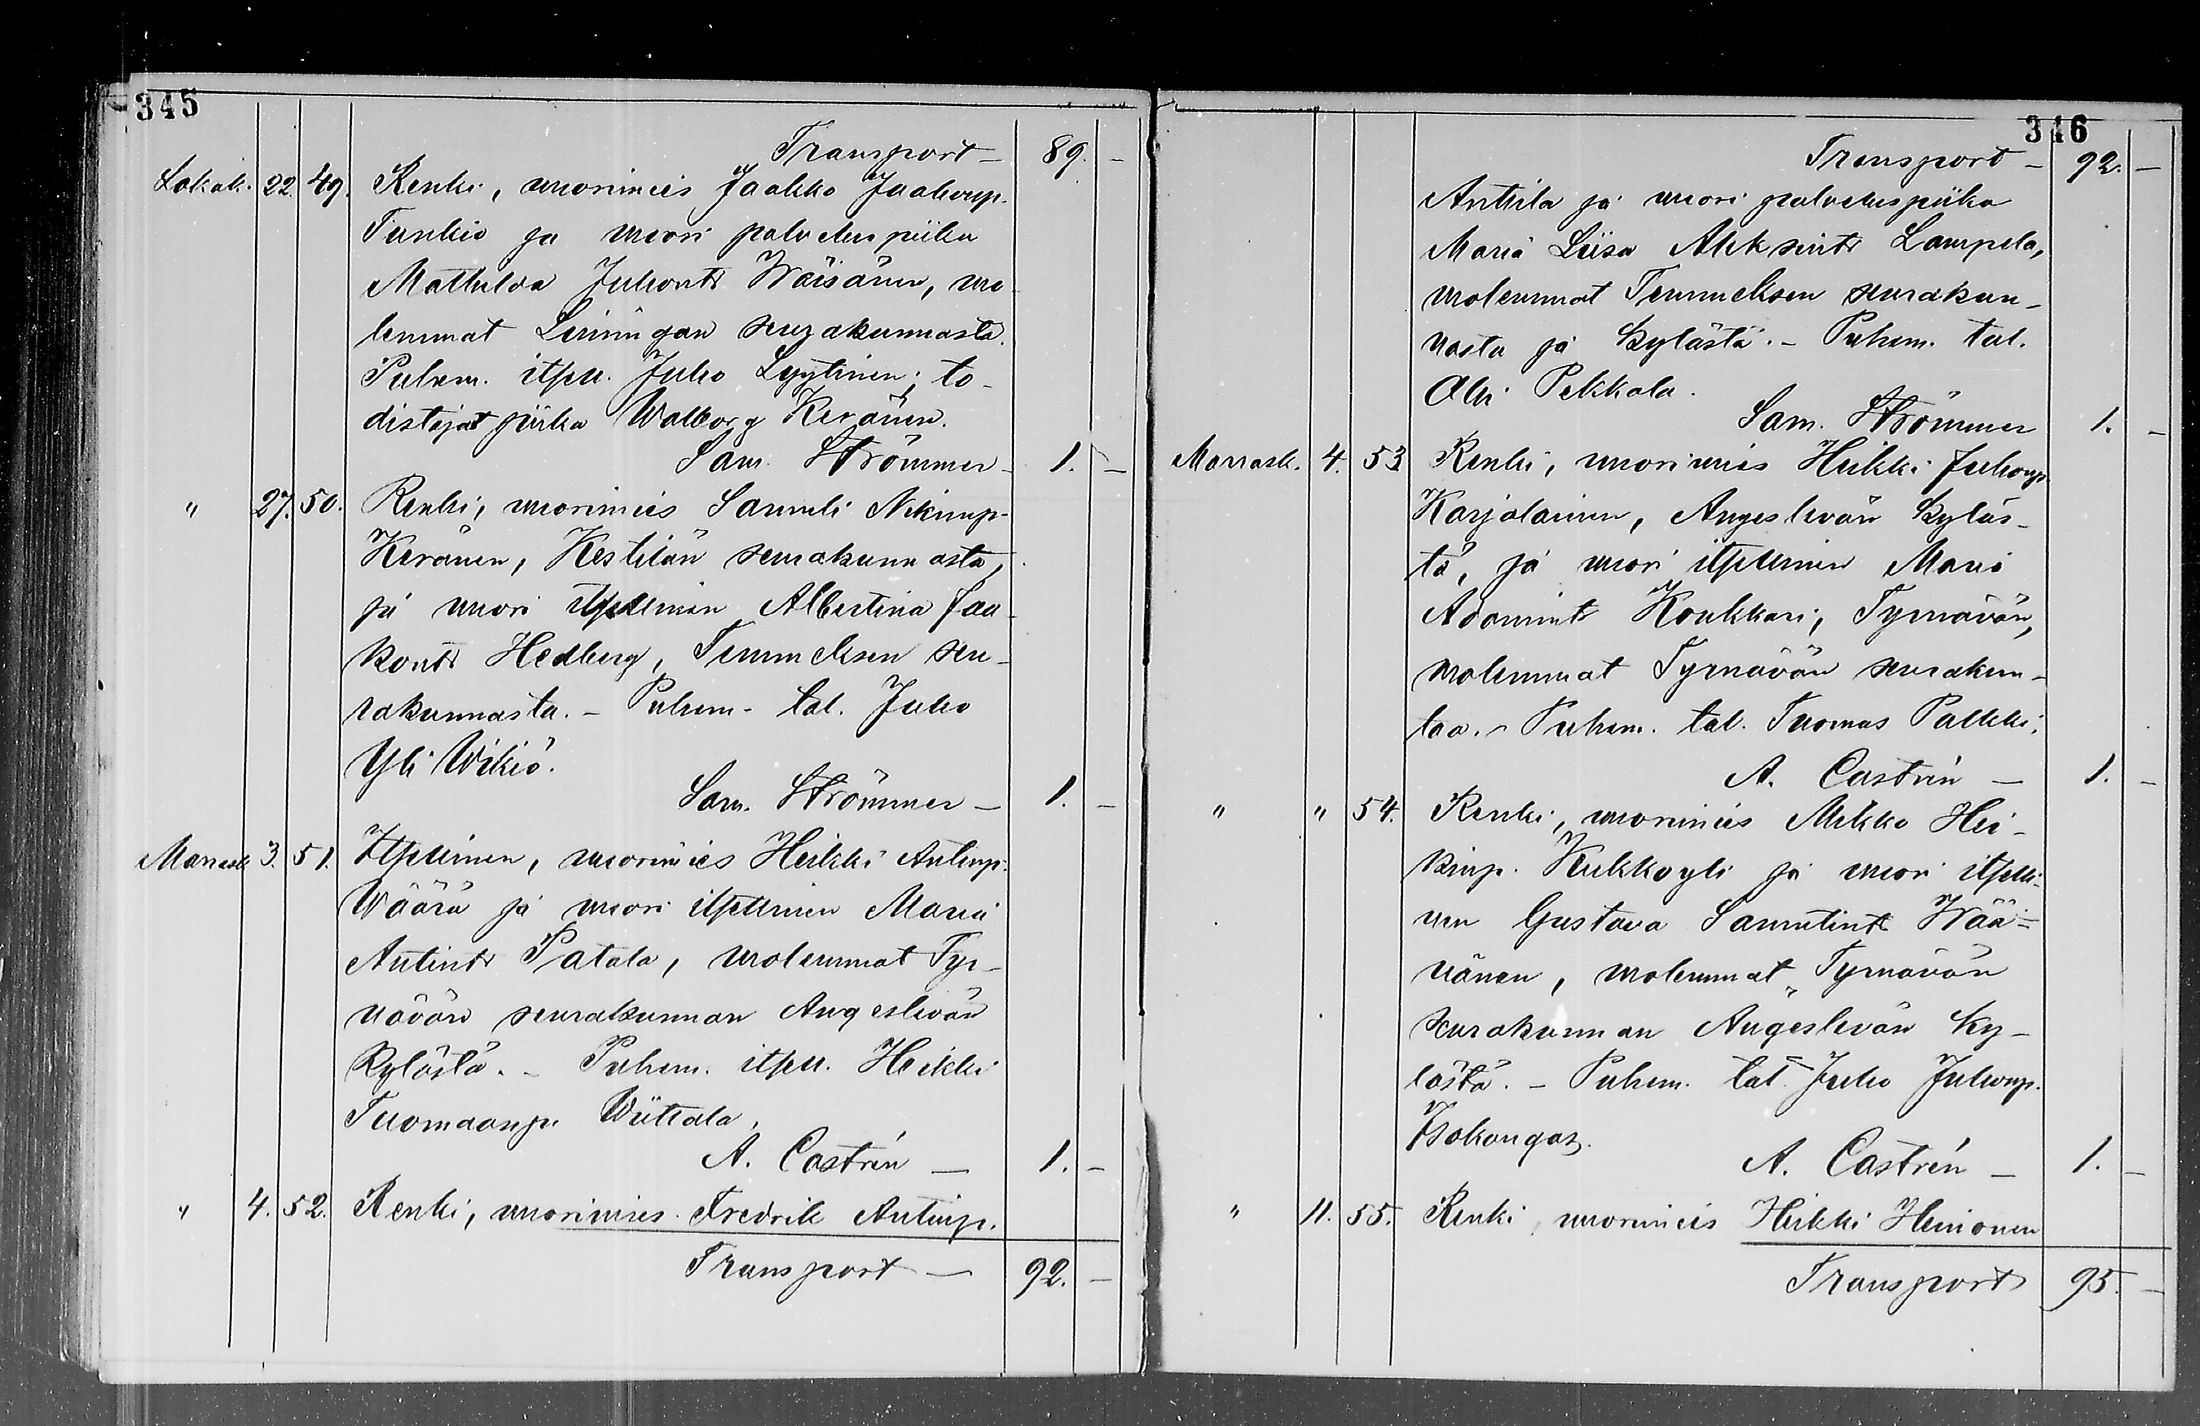 345
Transport — 89. —
Lokak. 22. 49. Renki, nuorimies Jaakko Jaakonp.
Tunkio ja nuori palveluspiika
Mathilda Juhont. Wäisänen, mo-
lemmat Limingan seurakunnasta.
Puhem. itsell. Juho Lyytinen; to-
distajat piika Walborg Keränen.
Sam. Strömmer — 1. —
" 27. 50. Renki, nuorimies Samuli Nikinp.
Keränen, Kestilän seurakunnasta,
ja nuori itsellinen Albertina Jaa-
kont. Hedberg, Temmeksen seu-
rakunnasta. — Puhem. tal. Juho
Yli Wikiö.
Sam. Strömmer — 1. —
Marrask. 3. 51. Itsellinen, nuorimies Heikki Antinp.
Wäärä ja nuori itsellinen Maria
Antint. Patala, molemmat Tyr-
nävän seurakunnan Angeslevän
kylästä. — Puhem. itsell. Heikki
Tuomaanp. Wiittala.
A. Castrén — 1. —
" 4. 52. Renki, nuorimies Fredrik Antinp.
Transport — 92. —
346
Transport — 92. —
Anttila ja nuori palveluspiika
Maria Liisa Aleksint. Lampela,
molemmat Temmeksen seurakun-
nasta ja kylästä. — Puhem. tal.
Olli Pekkala.
Sam. Strömmer 1. —
Marrask. 4. 53 Renki, nuorimies Heikki Juhonp.
Karjalainen, Angeslevän kyläs-
tä, ja nuori itsellinen Maria
Adamint. Koukkari, Tyrnävän,
molemmat Tyrnävän seurakun-
taa. — Puhem. tal. Tuomas Palkki.
A. Castrén — 1. —
" " 54. Renki, nuorimies Mikko Hei-
kinp. Keikkoyli ja nuori itselli-
nen Gustava Samulint. Wää-
nänen, molemmat Tyrnävän
seurakunnan Angeslevän ky-
lästä. — Puhem. tal. Juho Juhonp.
Isokangas.
A. Castrén — 1. —
" 11. 55. Renki, nuorimies Heikki Heinonen
Transport 95. —